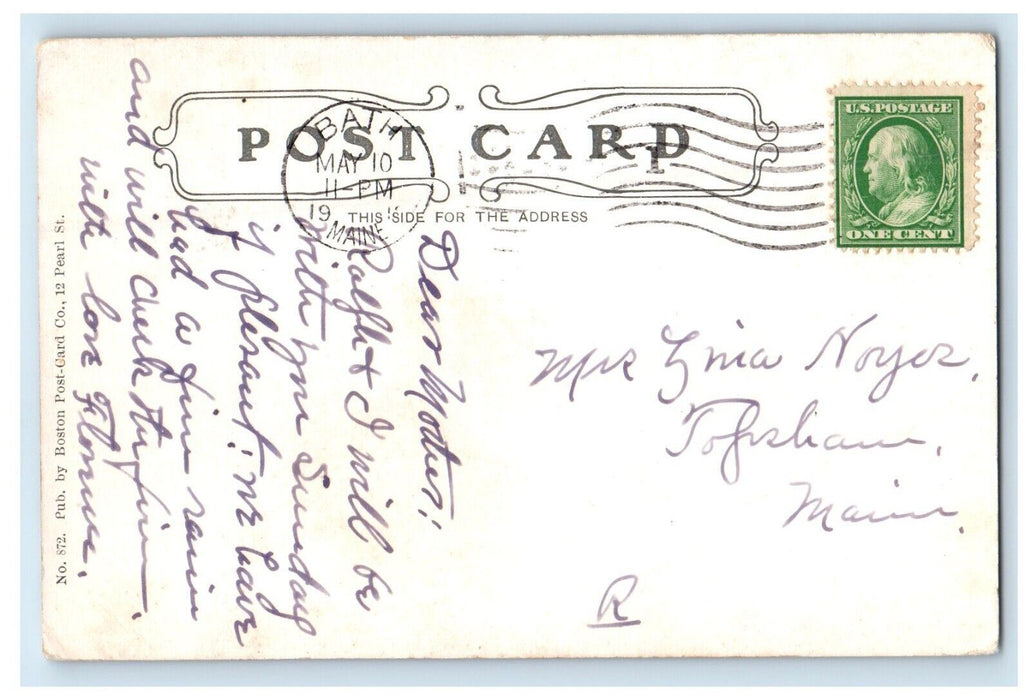 POST CARD
THIS SIDE FOR THE ADDRESS
BATH
MAY 10
11-PM
19
MAINE
1
U.S. POSTAGE
ONE CENT
Dear Mother;
Ralph & I will be
with you Sunday
if plesant; we have
had a fine rain
and will check the fires.
with love Florence.
Mrs Noyes,
Topsham,
Maine.
R
No. 872. Pub. by Boston Post-Card Co., 12 Pearl St.